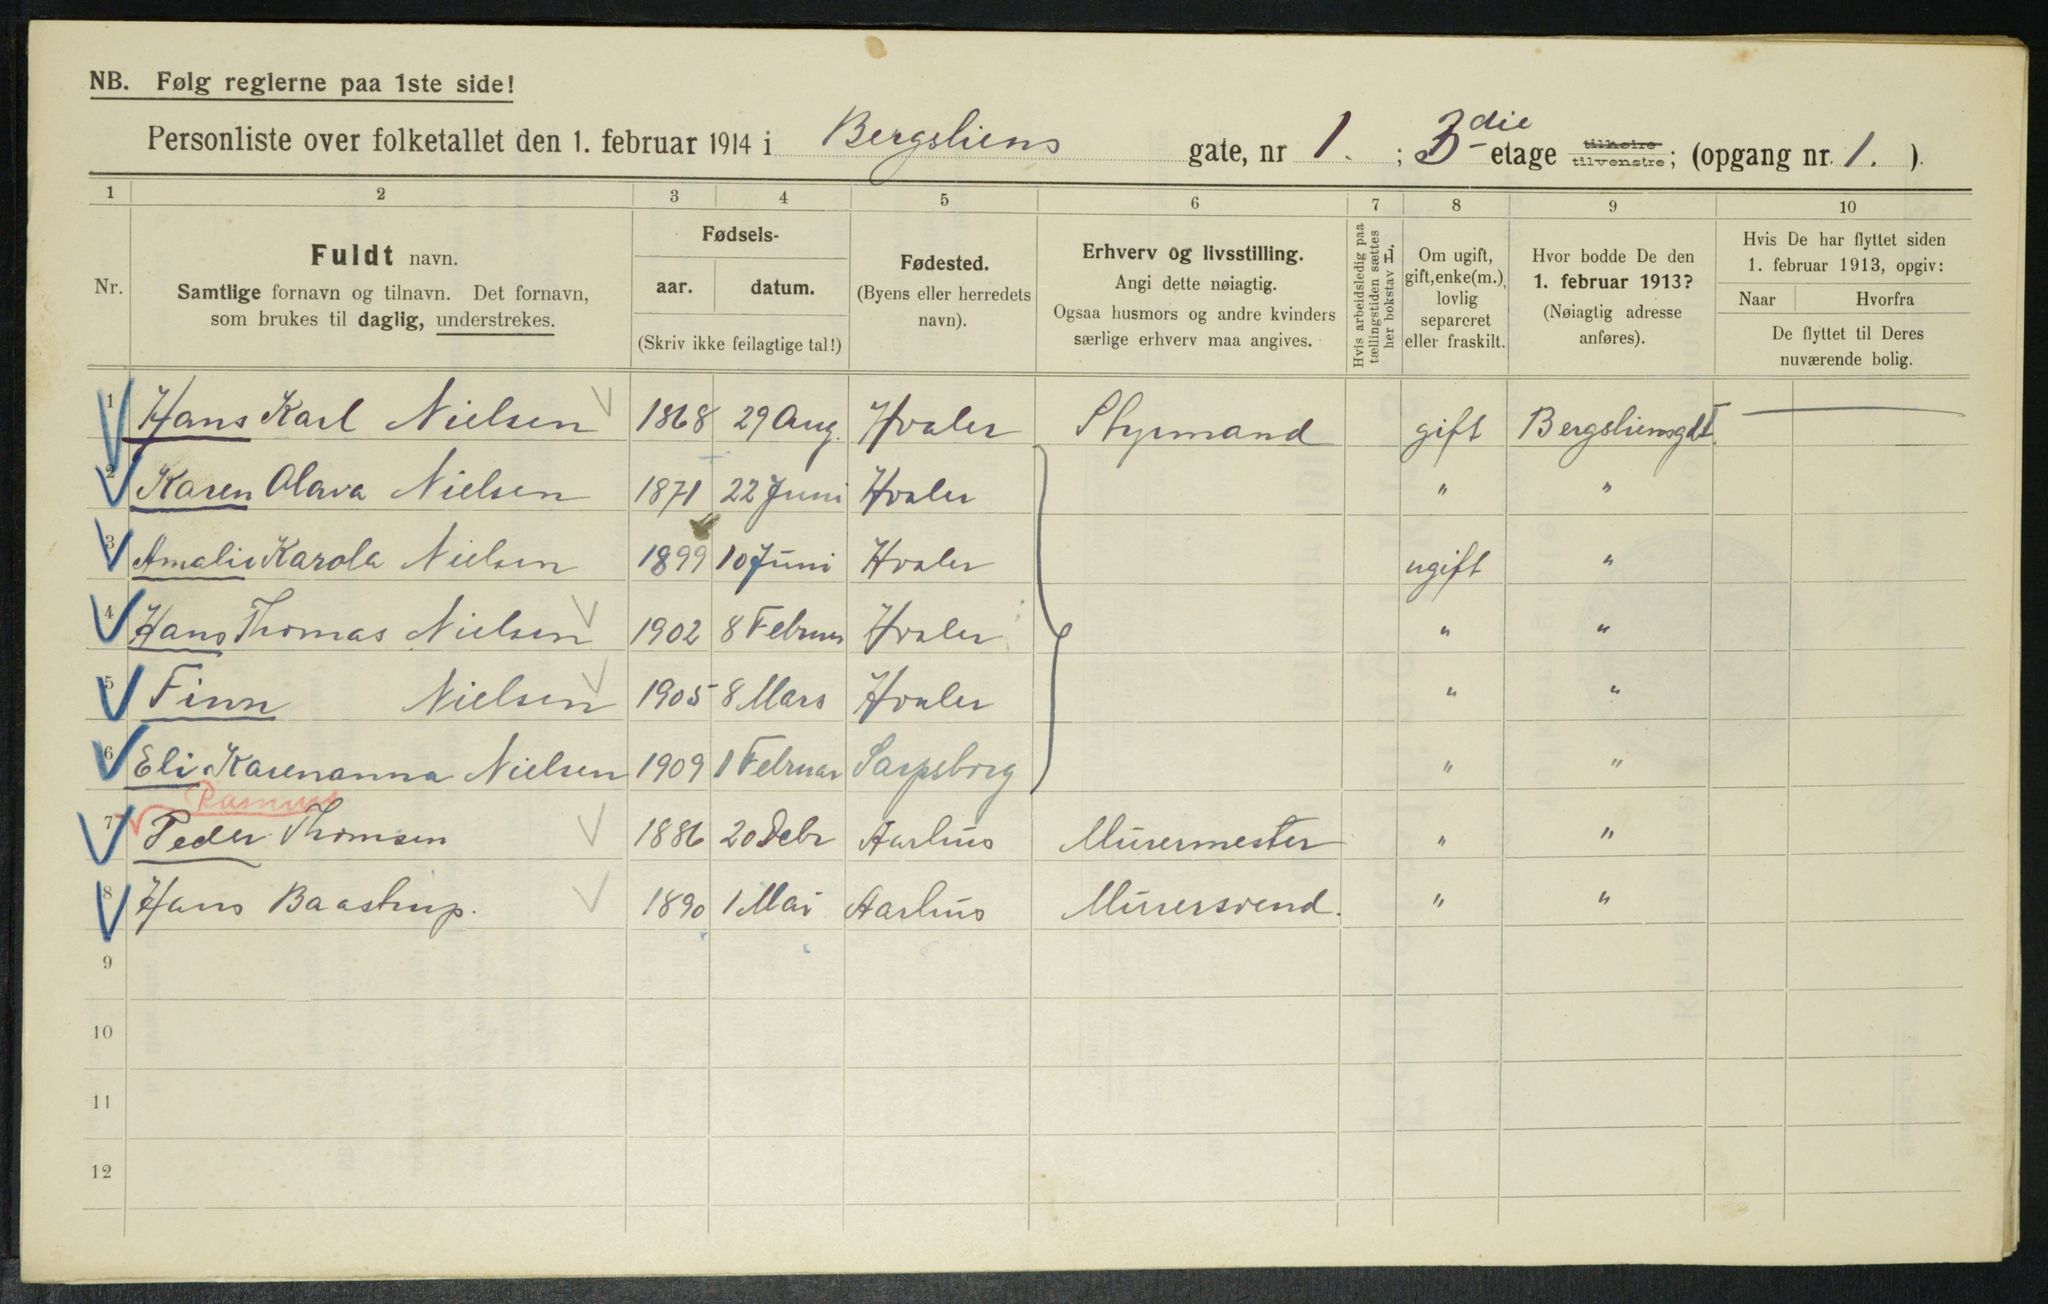 NB. Følg reglerne paa 1ste side!
Personliste over folketallet den 1. februar 1914 i Bergsliens gate, nr 1. ; 3die etage tilhøire tilvenstre; (opgang nr. 1. ).
1 2 3 4 5 6 7 8 9 10
Nr.
Fuldt navn.
Samtlige fornavn og tilnavn. Det fornavn,
som brukes til daglig, understrekes.
Fødsels-
aar. datum.
(Skriv ikke feilagtige tal!)
Fødested.
(Byens eller herredets
navn).
Erhverv og livsstilling.
Angi dette nøiagtig.
Ogsaa husmors og andre kvinders
særlige erhverv maa angives.
Hvis arbeidsledig paa
tællingstiden sættes
her bokstav L.
Om ugift,
gift, enke(m.),
lovlig
separeret
eller fraskilt.
Hvor bodde De den
1. februar 1913?
(Nøiagtig adresse
anføres).
Hvis De har flyttet siden
1. februar 1913, opgiv:
Naar Hvorfra
De flyttet til Deres
nuværende bolig.
1 Hans Karl Nielsen 1868 29 Aug. Hvaler Styrmand gift Bergsliensgt 1
2 Karen Olava Nielsen 1871 22 Juni Hvaler " "
3 Amalie Karola Nielsen 1899 10 Juni Hvaler ugift "
4 Hans Thomas Nielsen 1902 8 Februar Hvaler " "
5 Finn Nielsen 1905 8 Mars Hvaler " "
6 Eli Karenanna Nielsen 1909 1 Februar Sarpsborg " "
Rasmus
7 Peder Thomsen 1886 20 Debr Aarhus Murermester " "
8 Hans Baastrup. 1890 1 Mai Aarhus Murersvend. " "
9
10
11
12